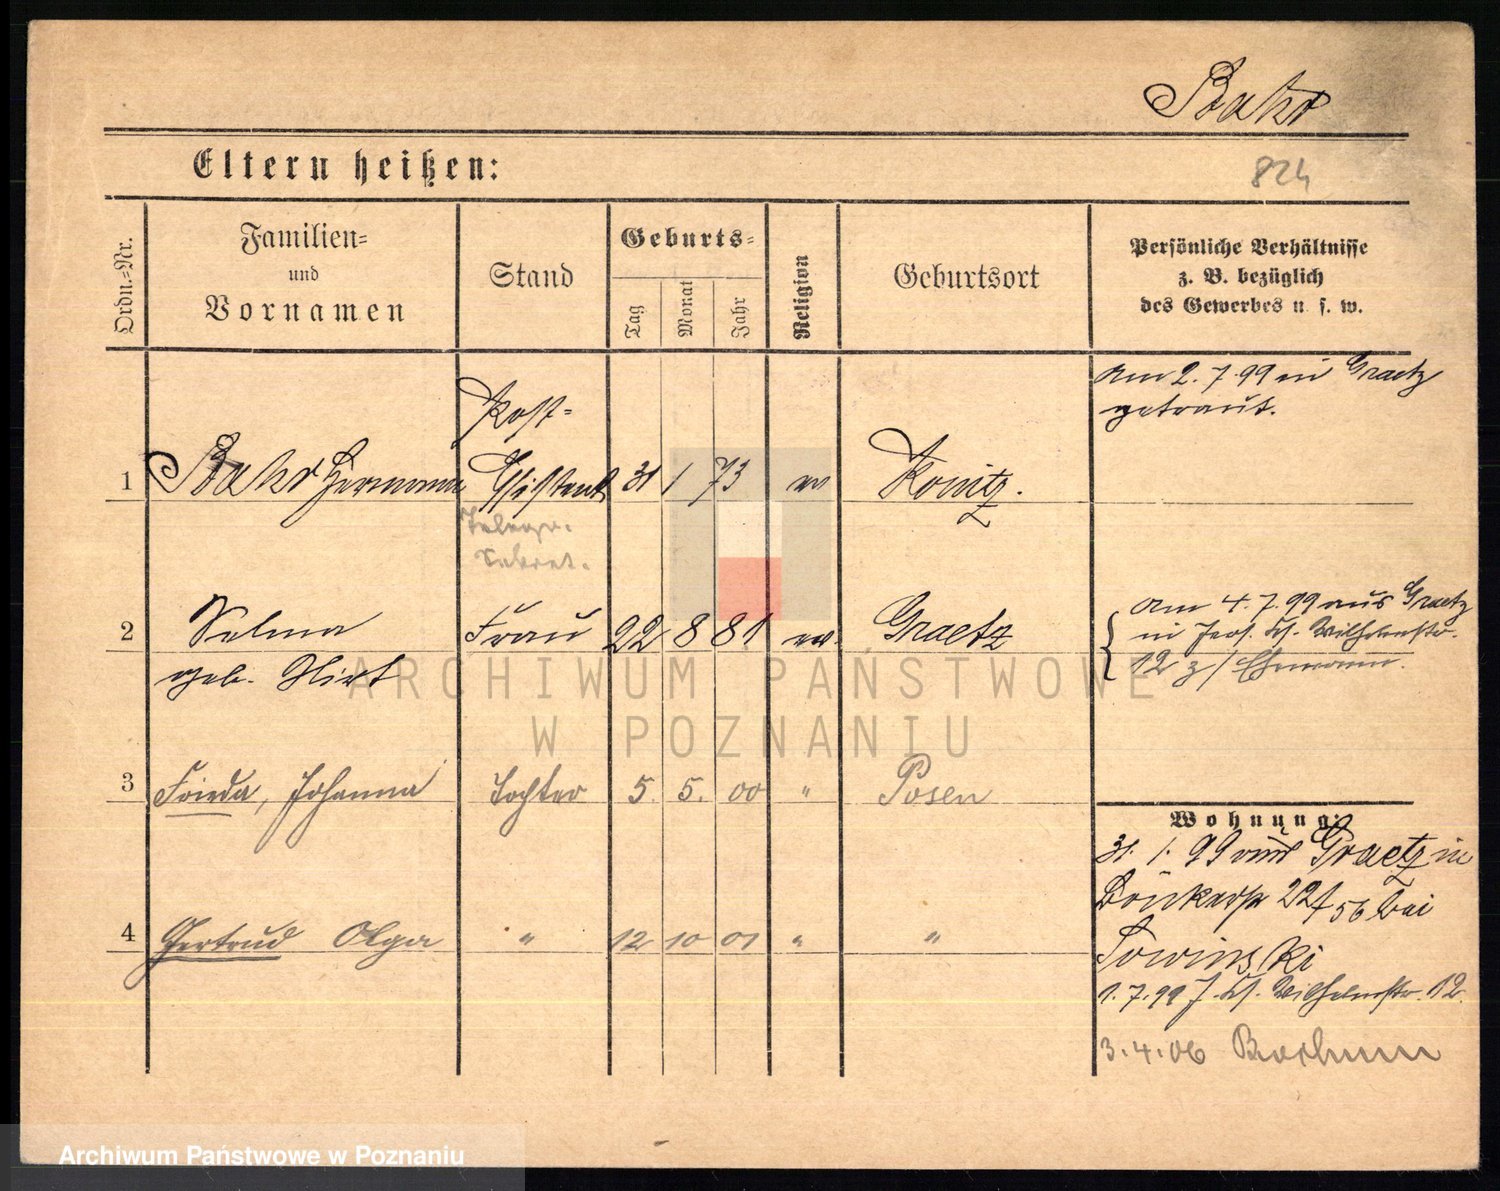 Bahr
Eltern heißen:
824
Ordn.=Nr.
Familien=
und
Vornamen
Stand
Geburts=
Tag
Monat
Jahr
Religion
Geburtsort
Persönliche Verhältnisse
z. B. bezüglich
des Gewerbes u. s. w.
am 2. 7. 99 in Graetz
getraut.
Post=
1 Hermann Assistent 31 1 73 ev Konitz.
Telegr.
Sekret.
2 Selma Frau 22 8 81 ev. Graetz
geb. Hirt
am 4. 7. 99 aus Graetz
in Jers. St. Wilhelmstr.
12 z/ Ehemann.
3 Frieda, Johanna Tochter 5. 5. 00 " Posen
4 Gertrud Olga " 12 10 01 " "
Wohnung:
31. 1. 99 aus Graetz in
22/56 bei
Sowinski
1. 7. 99 J. St. Wilhelmstr. 12.
3. 4. 06 Bochum
ARCHIWUM PAŃSTWOWE
W POZNANIU
Archiwum Państwowe w Poznaniu